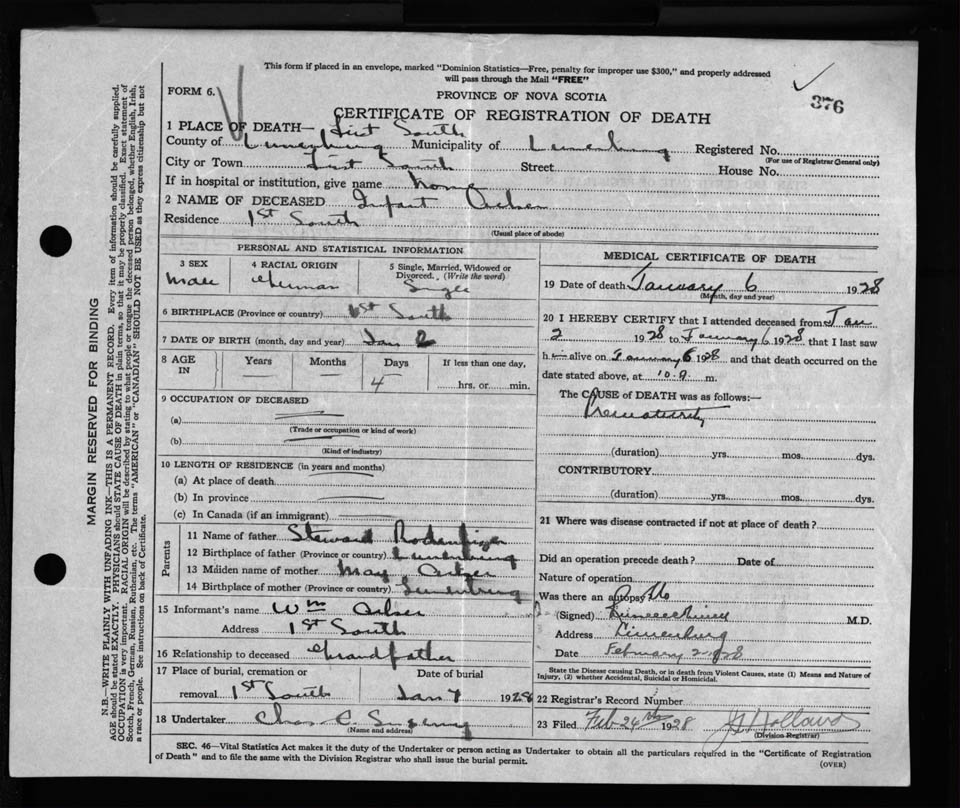 This form if placed in an envelope, marked "Dominion Statistics—Free, penalty for improper use $300," and properly addressed
will pass through the Mail "FREE"
376
FORM 6.
PROVINCE OF NOVA SCOTIA
CERTIFICATE OF REGISTRATION OF DEATH
1 PLACE OF DEATH— First South
County of Lunenburg Municipality of Lunenburg Registered No.
(For use of Registrar General only)
City or Town First South Street House No.
If in hospital or institution, give name home
2 NAME OF DECEASED Infant
Residence 1st South
(Usual place of abode)
PERSONAL AND STATISTICAL INFORMATION
3 SEX 4 RACIAL ORIGIN 5 Single, Married, Widowed or
Divorced. (Write the word)
Male German Single
6 BIRTHPLACE (Province or country) 1st South
7 DATE OF BIRTH (month, day and year) Jan 2
8 AGE IN Years Months Days If less than one day,
4 hrs. or min.
9 OCCUPATION OF DECEASED
(a)
(Trade or occupation or kind of work)
(b)
(Kind of industry)
10 LENGTH OF RESIDENCE (in years and months)
(a) At place of death
(b) In province
(c) In Canada (if an immigrant)
Parents
11 Name of father Steward
12 Birthplace of father (Province or country) Lunenburg
13 Maiden name of mother May
14 Birthplace of mother (Province or country) Lunenburg
15 Informant's name Wm
Address 1st South
16 Relationship to deceased Grandfather
17 Place of burial, cremation or
removal 1st South Jan 7 1928
18 Undertaker Chas
(Name and address)
MEDICAL CERTIFICATE OF DEATH
19 Date of death January 6 1928
(Month, day and year)
20 I HEREBY CERTIFY that I attended deceased from Jan
2 1928 to January 6 1928 that I last saw
h im alive on January 6 1928 and that death occurred on
date stated above, at 10 A. m.
The CAUSE of DEATH was as follows:—
Prematurity
(duration) yrs. mos. dys.
CONTRIBUTORY
(duration) yrs. mos. dys.
21 Where was disease contracted if not at place of death?
Did an operation precede death? Date of
Nature of operation
Was there an autopsy No
(Signed) M.D.
Address Lunenburg
Date February 2 1928
State the Disease causing Death, or in death from Violent Causes, state (1) Means and Nature of
Injury, (2) whether Accidental, Suicidal or Homicidal.
22 Registrar's Record Number
23 Filed Feb 24th 1928 Holland
(Division Registrar)
SEC. 46—Vital Statistics Act makes it the duty of the Undertaker or person acting as Undertaker to obtain all the particulars required in the "Certificate of Registration
of Death" and to file the same with the Division Registrar who shall issue the burial permit.
(OVER)
MARGIN RESERVED FOR BINDING
N.B.—WRITE PLAINLY WITH UNFADING INK—THIS IS A PERMANENT RECORD. Every item of information should be carefully supplied.
AGE should be stated EXACTLY. PHYSICIANS should STATE CAUSE OF DEATH in plain terms, so that it may be properly classified. Exact statement of
OCCUPATION is very important. RACIAL ORIGIN will be described by stating to what people or tongue the deceased person belonged, whether English, Irish,
Scotch, French, German, Russian, Ruthenian, etc. The terms "AMERICAN" or "CANADIAN" SHOULD NOT BE USED as they express citizenship but not
a race or people. See instructions on back of Certificate.